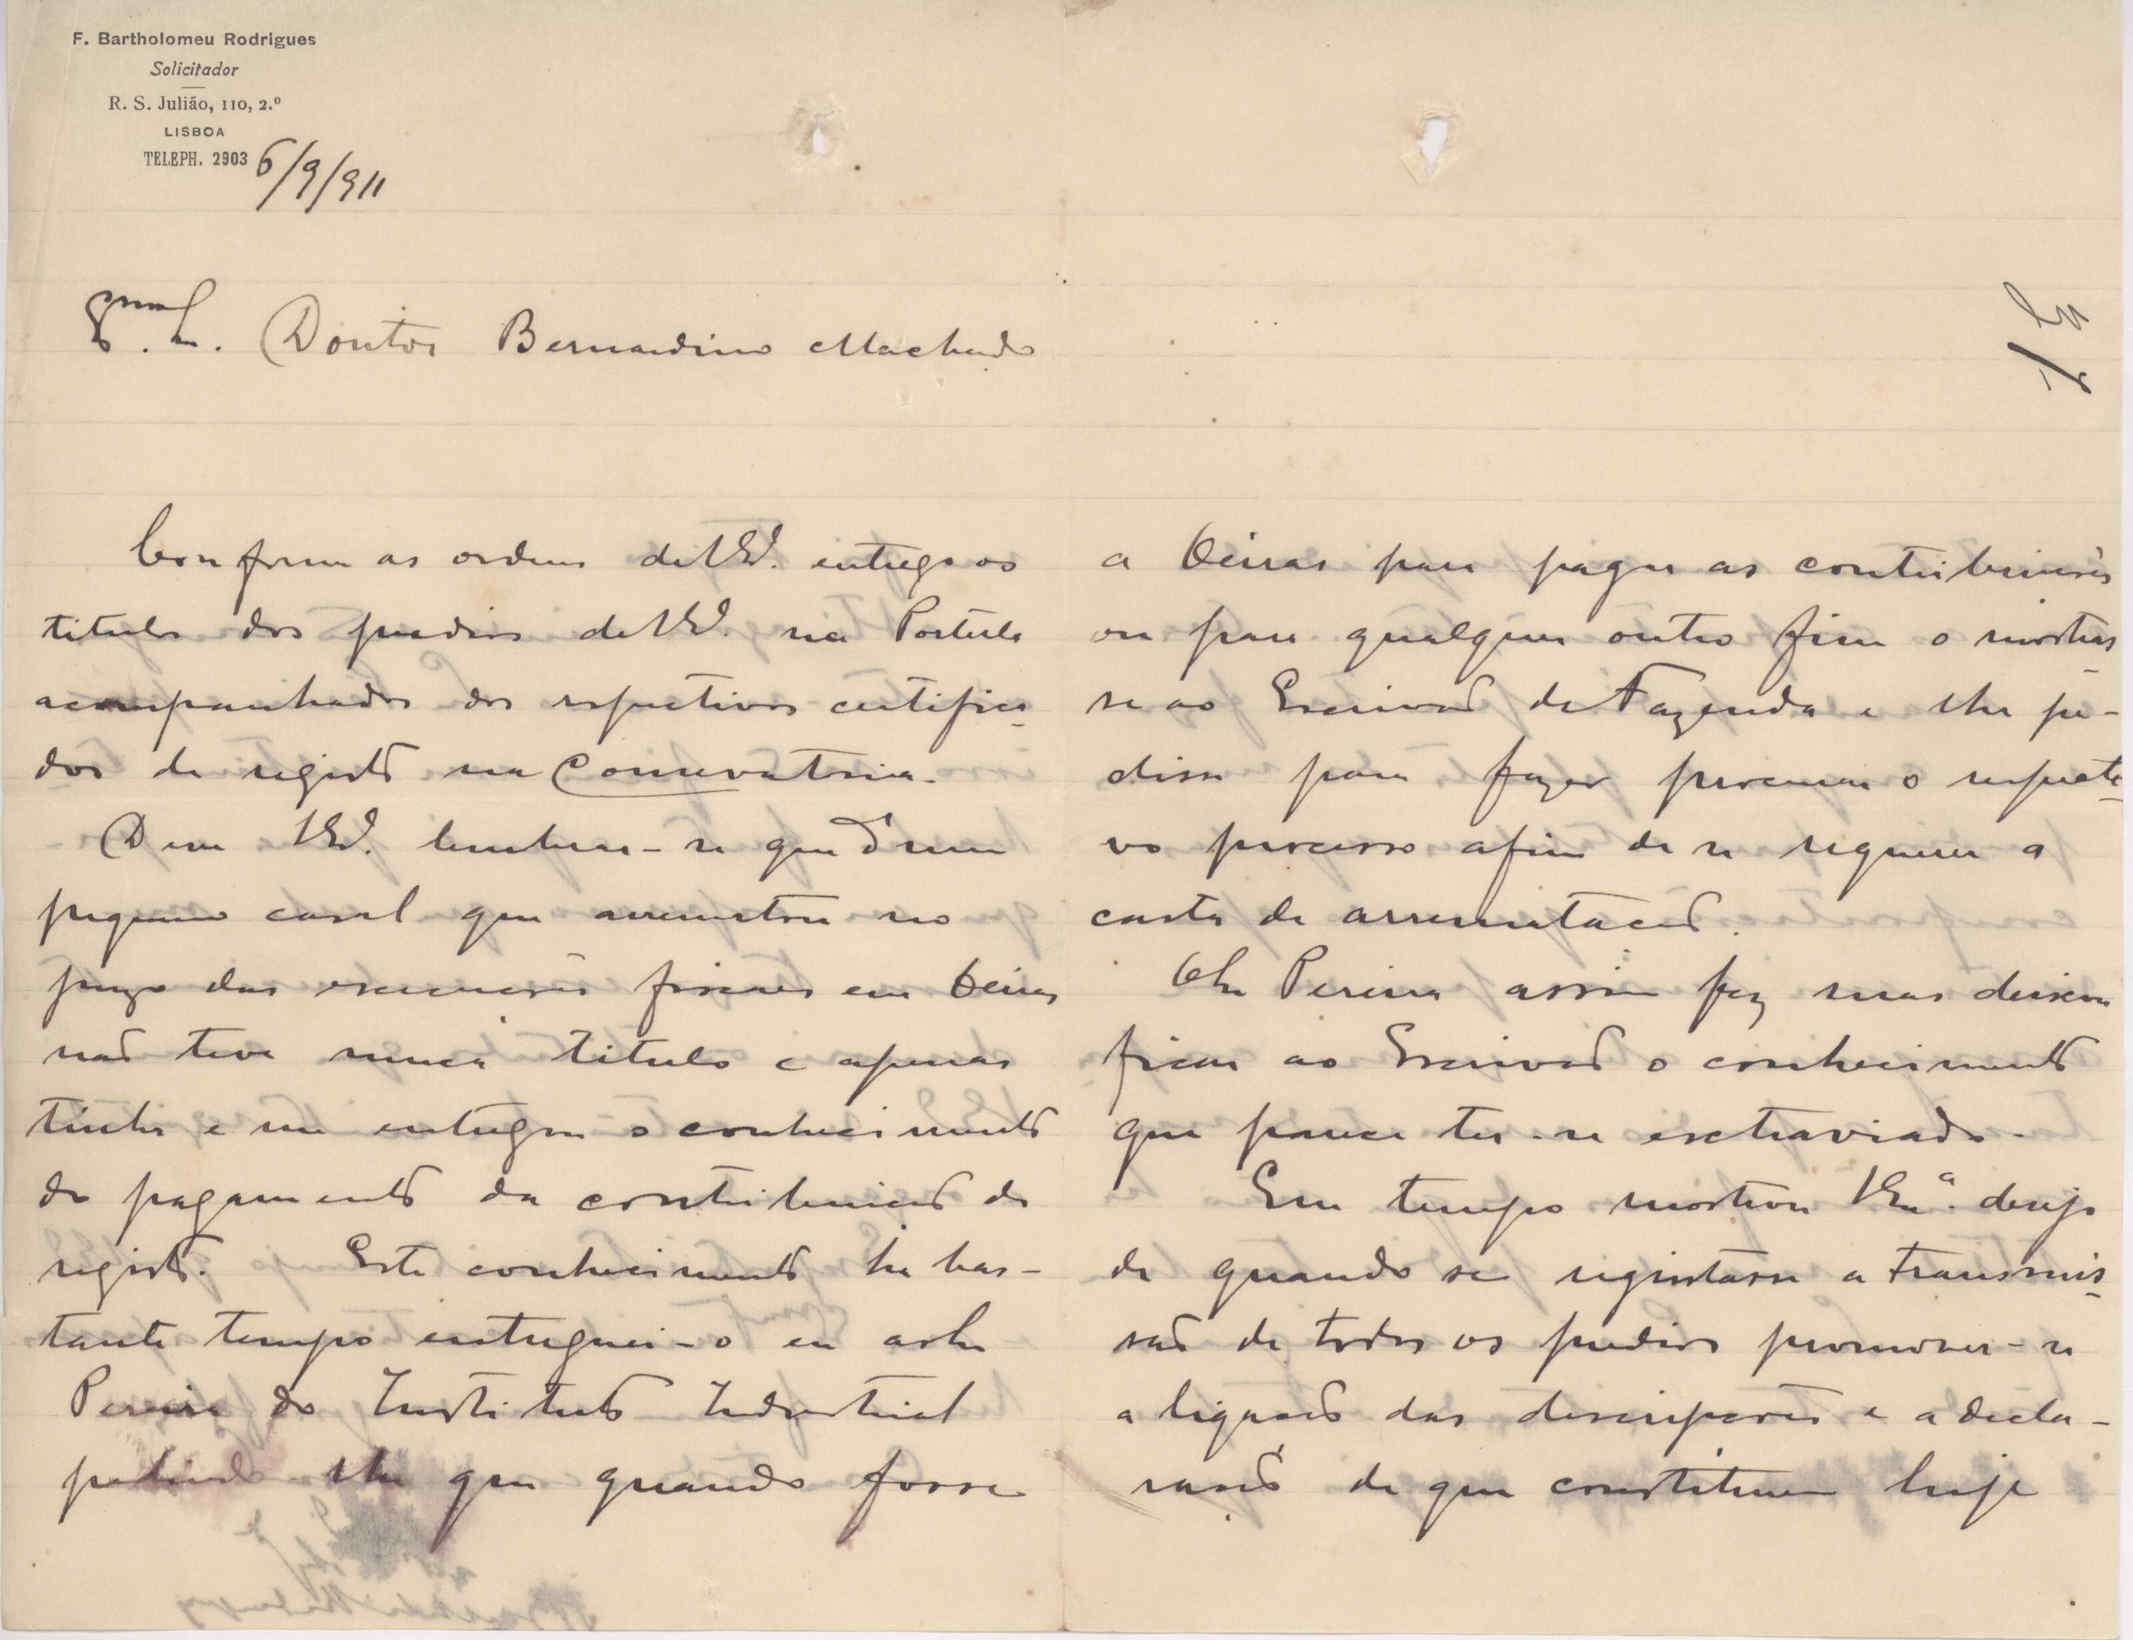 F. Bartholomeu Rodrigues
Solicitador
R. S. Julião, 110, 2.º
LISBOA
TELEPH. 2903
6/9/911
Doutor Bernardino Machado
Conforme as ordens de V. Exª. entrego os
titulos dos predios de V. Exª. na Portela
acompanhados dos respectivos certifica-
dos de registo na Conservatoria.
Deve V. Exª. lembrar-se que d'um
pequeno casal que arrematou no
juizo das execuções fiscaes em Oeiras
não teve nunca titulo e apenas
tinha e me entregou o conhecimento
do pagamento da contribuição de
registo. Este conhecimento ha bas-
tante tempo entreguei-o eu ao Sr
Pereira do Instituto Industrial
pedindo-lhe que quando fosse
a Oeiras para pagar as contribuições
ou para qualquer outro fim o mostras
se ao Escrivão de Fazenda e lhe pe-
disse para fazer procurar o respecti-
vo processo afim de se requerer a
carta de arrematação.
O Sr Pereira assim fez mas deixou
ficar ao Escrivão o conhecimento
que parece ter-se extraviado.
Em tempo mostrou V. Exª. desejo
de quando se registasse a transmis-
são de todos os predios promover-se
a ligação das descripções e a decla-
ração de que constituem hoje